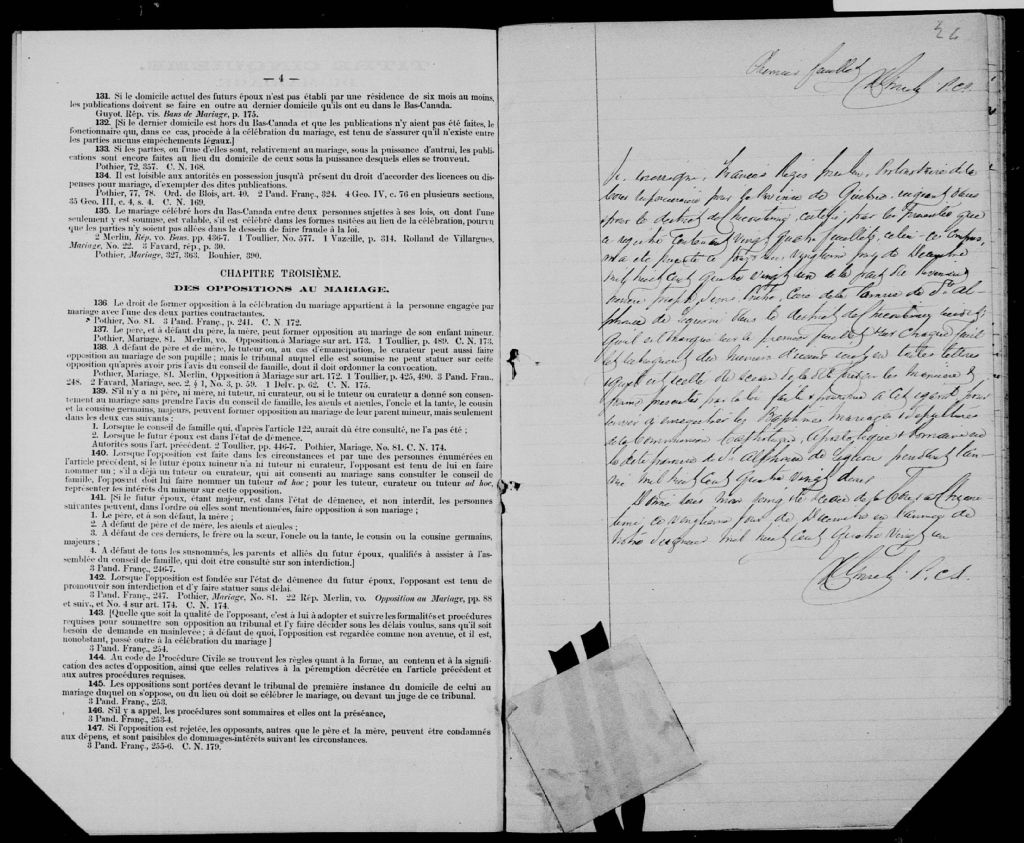 — 4 —
131. Si le domicile actuel des futurs époux n'est pas établi par une résidence de six mois au moins,
les publications doivent se faire en outre au dernier domicile qu'ils ont eu dans le Bas-Canada.
Guyot. Rép. vis. Bans de Mariage, p. 175.
132. [Si le dernier domicile est hors du Bas-Canada et que les publications n'y aient pas été faites, le
fonctionnaire qui, dans ce cas, procède à la célébration du mariage, est tenu de s'assurer qu'il n'existe entre
les parties aucuns empêchements légaux.]
133. Si les parties, ou l'une d'elles sont, relativement au mariage, sous la puissance d'autrui, les publi-
cations sont encore faites au lieu du domicile de ceux sous la puissance desquels elles se trouvent.
Pothier, 72, 357. C. N. 168.
134. Il est loisible aux autorités en possession jusqu'à présent du droit d'accorder des licences ou dis-
penses pour mariage, d'exempter des dites publications.
Pothier, 77, 78. Ord. de Blois, art. 40. 2 Pand. Franç., 324. 4 Geo. IV, c. 76 en plusieurs sections,
35 Geo. III, c. 4, s. 4. C. N. 169.
135. Le mariage célébré hors du Bas-Canada entre deux personnes sujettes à ses lois, ou dont l'une
seulement y est soumise, est valable, s'il est célébré dans les formes usitées au lieu de la célébration, pourvu
que les parties n'y soient pas allées dans le dessein de faire fraude à la loi.
2 Merlin, Rép. vo. Bans. pp. 436-7. 1 Toullier, No. 577. 1 Vazeille, p. 314. Rolland de Villargues,
Mariage, No. 22. 3 Favard, rép., p. 30.
Pothier, Mariage, 327, 363. Bouhier, 390.
CHAPITRE TROISIÈME.
DES OPPOSITIONS AU MARIAGE.
136. Le droit de former opposition à la célébration du mariage appartient à la personne engagée par
mariage avec l'une des deux parties contractantes.
Pothier, No. 81. 3 Pand. Franç., p. 241. C. N. 172.
137. Le père, et à défaut du père, la mère, peut former opposition au mariage de son enfant mineur.
Pothier, Mariage, 81. Merlin, vo. Opposition à Mariage sur art. 173. 1 Toullier, p. 489. C. N. 173.
138. A défaut de père et de mère, le tuteur ou, au cas d'émancipation, le curateur peut aussi faire
opposition au mariage de son pupille ; mais le tribunal auquel elle est soumise ne peut statuer sur cette
opposition qu'après avoir pris l'avis du conseil de famille, dont il doit ordonner la convocation.
Pothier, Mariage, 81. Merlin, Opposition à Mariage sur art. 172. 1 Toullier, p. 425, 490. 3 Pand. Fran.,
248. 2 Favard, Mariage, sec. 2, § 1, No. 3, p. 59. 1 Delv. p. 62. C. N. 175.
139. S'il n'y a ni père, ni mère, ni tuteur, ni curateur, ou si le tuteur ou curateur a donné son consen-
tement au mariage sans prendre l'avis du conseil de famille, les aïeuls et aïeules, l'oncle et la tante, le cousin
et la cousine germains, majeurs, peuvent former opposition au mariage de leur parent mineur, mais seulement
dans les deux cas suivants :
1. Lorsque le conseil de famille qui, d'après l'article 122, aurait dû être consulté, ne l'a pas été ;
2. Lorsque le futur époux est dans l'état de démence.
Autorités sous l'art. précédent. 2 Toullier, pp. 446-7. Pothier, Mariage, No. 81. C. N. 174.
140. Lorsque l'opposition est faite dans les circonstances et par une des personnes énumérées en
l'article précédent, si le futur époux mineur n'a ni tuteur ni curateur, l'opposant est tenu de lui en faire
nommer un ; s'il a déjà un tuteur ou curateur, qui ait consenti au mariage sans consulter le conseil de
famille, l'opposant doit lui faire nommer un tuteur ad hoc ; pour les tuteur, curateur ou tuteur ad hoc,
représenter les intérêts du mineur sur cette opposition.
141. [Si le futur époux, étant majeur, est dans l'état de démence, et non interdit, les personnes
suivantes peuvent, dans l'ordre où elles sont mentionnées, faire opposition à son mariage ;
1. Le père, et à son défaut, la mère ;
2. A défaut de père et de mère, les aïeuls et aïeules ;
3. A défaut de ces derniers, le frère ou la sœur, l'oncle ou la tante, le cousin ou la cousine germains,
majeurs ;
4. A défaut de tous les susnommés, les parents et alliés du futur époux, qualifiés à assister à l'as-
semblée du conseil de famille, qui doit être consulté sur son interdiction.]
3 Pand. Franç., 246-7.
142. Lorsque l'opposition est fondée sur l'état de démence du futur époux, l'opposant est tenu de
promouvoir son interdiction et d'y faire statuer sans délai.
3 Pand. Franç., 247. Pothier, Mariage, No. 81. 22 Rép. Merlin, vo. Opposition au Mariage, pp. 88
et suiv., et No. 4 sur art. 174. C. N. 174.
143. [Quelle que soit la qualité de l'opposant, c'est à lui à adopter et suivre les formalités et procédures
requises pour soumettre son opposition au tribunal et l'y faire décider sous les délais voulus, sans qu'il soit
besoin de demande en mainlevée ; à défaut de quoi, l'opposition est regardée comme non avenue, et il est,
nonobstant, passé outre à la célébration du mariage]
3 Pand. Franç., 254.
144. Au code de Procédure Civile se trouvent les règles quant à la forme, au contenu et à la signifi-
cation des actes d'opposition, ainsi que celles relatives à la péremption décrétée en l'article précédent et
aux autres procédures requises.
145. Les oppositions sont portées devant le tribunal de première instance du domicile de celui au
mariage duquel on s'oppose, ou du lieu où doit se célébrer le mariage, ou devant un juge de ce tribunal.
3 Pand. Franç., 253.
146. S'il y a appel, les procédures sont sommaires et elles ont la préséance,
3 Pand. Franç., 253-4.
147. Si l'opposition est rejetée, les opposants, autres que le père et la mère, peuvent être condamnés
aux dépens, et sont paisibles de dommages-intérêts suivant les circonstances.
3 Pand. Franç., 255-6. C. N. 179.
Premier feuillet
P.C.S.
Je, soussigné, François Régis Protonotaire de la
Cour Supérieure pour la Province de Québec, exerçant dans
pour le district de certifie, par les présentes que
ce registre contenant vingt quatre feuillets, celui-ci compris,
m'a été présenté ce jour de Décembre
mil huit cent quatre vingt un de la part du Révérend
Joseph Prêtre, Curé de la Paroisse de St. Al-
phonse de Liguori dans le district de
qu'il est marqué sur le premier feuillet & sur chaque feuil-
let du numéro d'icelui écrit en toutes lettres
de la manière &
forme prescrites par la loi pour
servir à enregistrer les Baptêmes, mariages & sépultures
de la Communion Catholique, Apostolique & Romaine en
la dite paroisse de St. Alphonse de Liguori pendant l'an-
née mil huit cent quatre vingt deux.
Donné sous mon seing & le sceau de la Cour
ce jour de Décembre en l'année de
Notre Seigneur mil huit cent quatre vingt un
P.C.S.